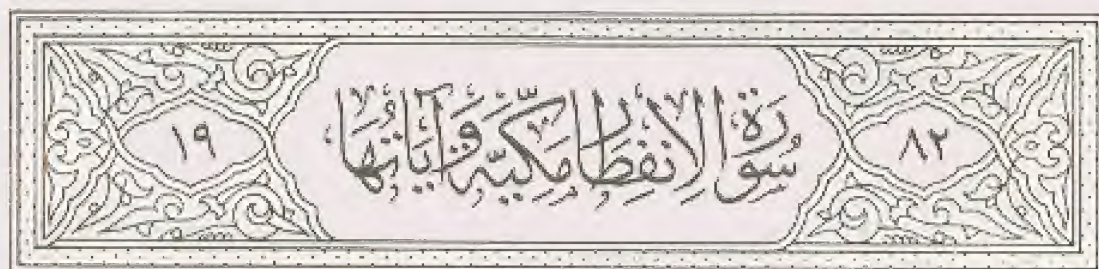 ٨٢ سُورَةُ الِانفِطَارِ مَكِّيَّة وَآيَاتُهَا ١٩